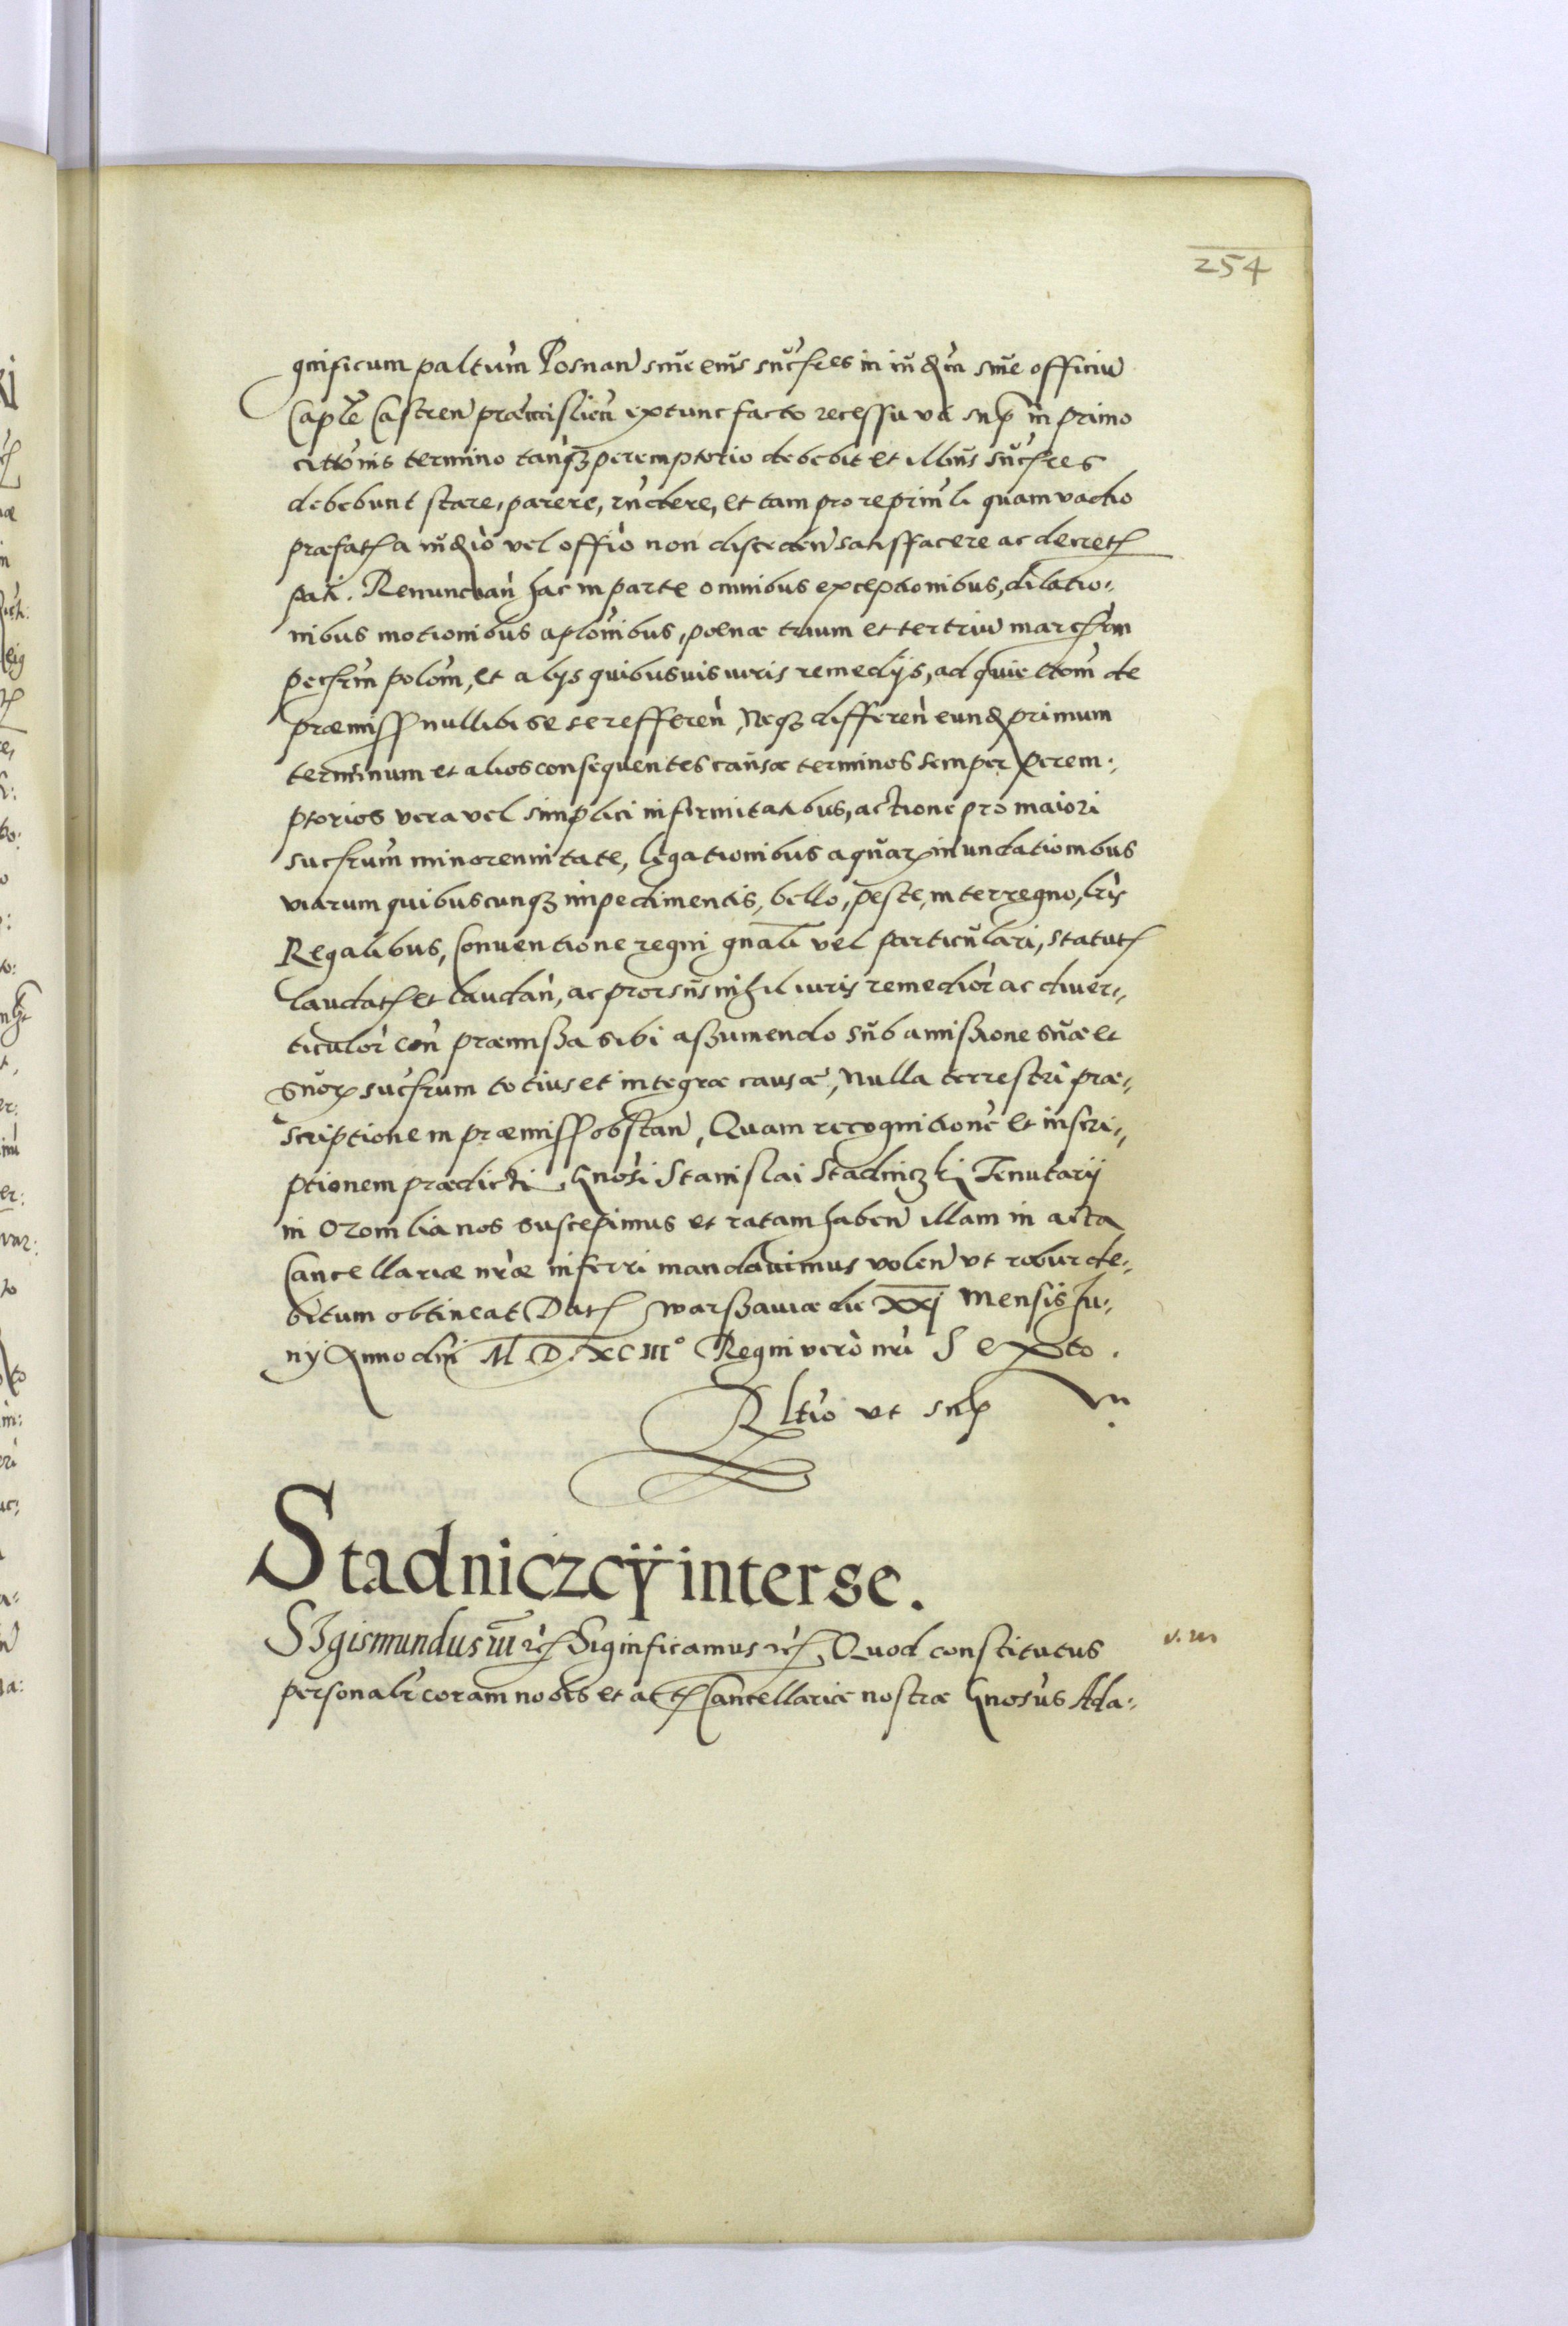 254
gnificum paltum Posnan siue eius sucssres in iudm siue officiu
Caple Castren præmislien extunc facto recessu vt sup in primo
cittonis termino tanqz peremptorio debebit et illius sucssres
debebunt stare, parere, rndere, et tam pro reprinli quam vadio
præfat a iudio vel offio non disceden satisfacere ac decret
pati. Renuncian hac in parte omnibus exceptionibus, dilatio:
nibus motionibus aplonibus, poenæ trium et tertriu marcarum
pecrm polom, et alys quibusuis iuris remedijs, ad quietom de
præmiss nullibi se se refferen, Neqz differen eund primum
terminum et alios consequentes causæ terminos semper perem:
ptorios vera vel simplici infirmitatibus, actione pro maiori
sucssrum minorennitate, legationibus aquar inundationibus
viarum quibuscunqz impedimentis, bello, peste, interregno, lris
Regalibus, Conuentione regni gnali vel particulari, statut
laudat et laudan, ac prorsus nihil iuris remedior ac diuer:
ticulor con præmissa sibi assumendo sub amissione suæ et
suor sucssrum totius et integræ causæ, Nulla terrestri præ:
scriptione in præmiss obstan, Quam recognitione et inscri:
ptionem prædicti Gnosi Stanislai Stadniczki Tenutarij
in Ozomlia nos suscepimus et ratam haben illam in acta
Cancellariæ nræ inferri mandauimus volen vt robur de:
bitum obtineat Dat Warssauiæ die XXj Mensis Ju:
ny Anno dni M.D.XCIII° Regni vero nri Sexto.
Rltio vt sup
Stadniczcÿ inter se.
SIgismundus III rc Significamus rc, Quod constitutus
v. m
personalr coram nobis et act Cancellariæ nostræ Gnosus Ada: